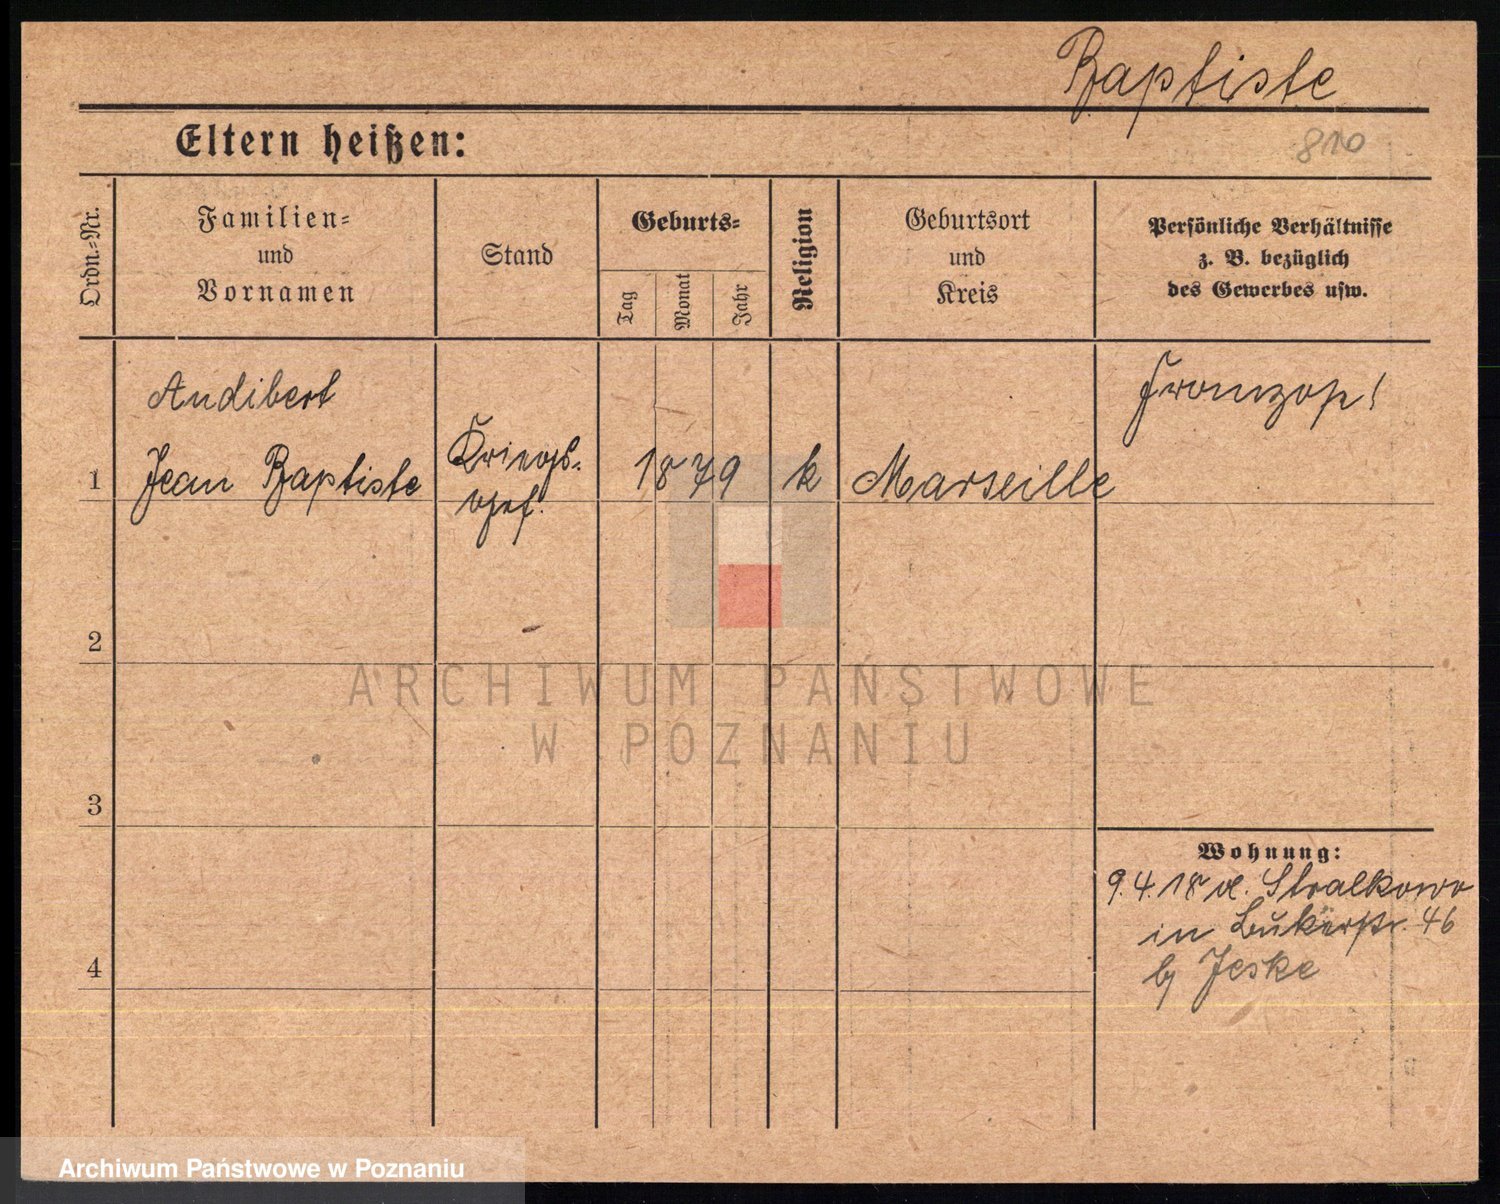 Baptiste
Eltern heißen:
810
Ordn.-Nr.
Familien-
und
Vornamen
Stand
Geburts-
Tag
Monat
Jahr
Religion
Geburtsort
und
Kreis
Persönliche Verhältnisse
z. B. bezüglich
des Gewerbes usw.
Audibert
Franzose!
1
Jean Baptiste
Kriegs-
gef.
1879
k
Marseille
2
ARCHIWUM PAŃSTWOWE
W POZNANIU
3
Wohnung:
9.4.18 v. Stralkowo
in Bukerstr. 46
b/ Jeske
4
Archiwum Państwowe w Poznaniu